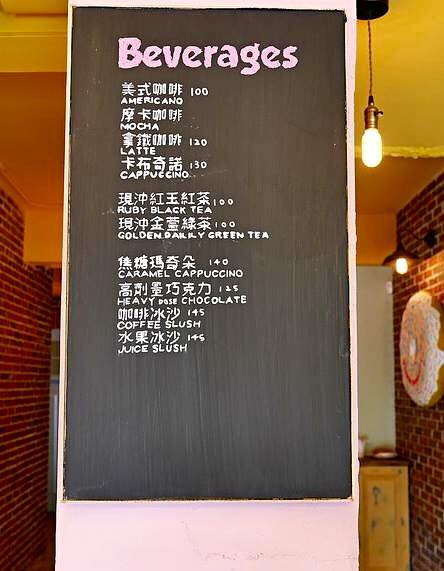 Beverages
美式咖啡 100
AMERICANO
摩卡咖啡
MOCHA
拿鐵咖啡 120
LATTE
卡布奇諾 130
CAPPUCCINO
現沖紅玉紅茶100
RUBY BLACK TEA
現沖金萱綠茶100
GOLDEN DAILILY GREEN TEA
焦糖瑪奇朵 140
CARAMEL CAPPUCCINO
高劑量巧克力 125
HEAVY DOSE CHOCOLATE
咖啡冰沙 145
COFFEE SLUSH
水果冰沙 145
JUICE SLUSH